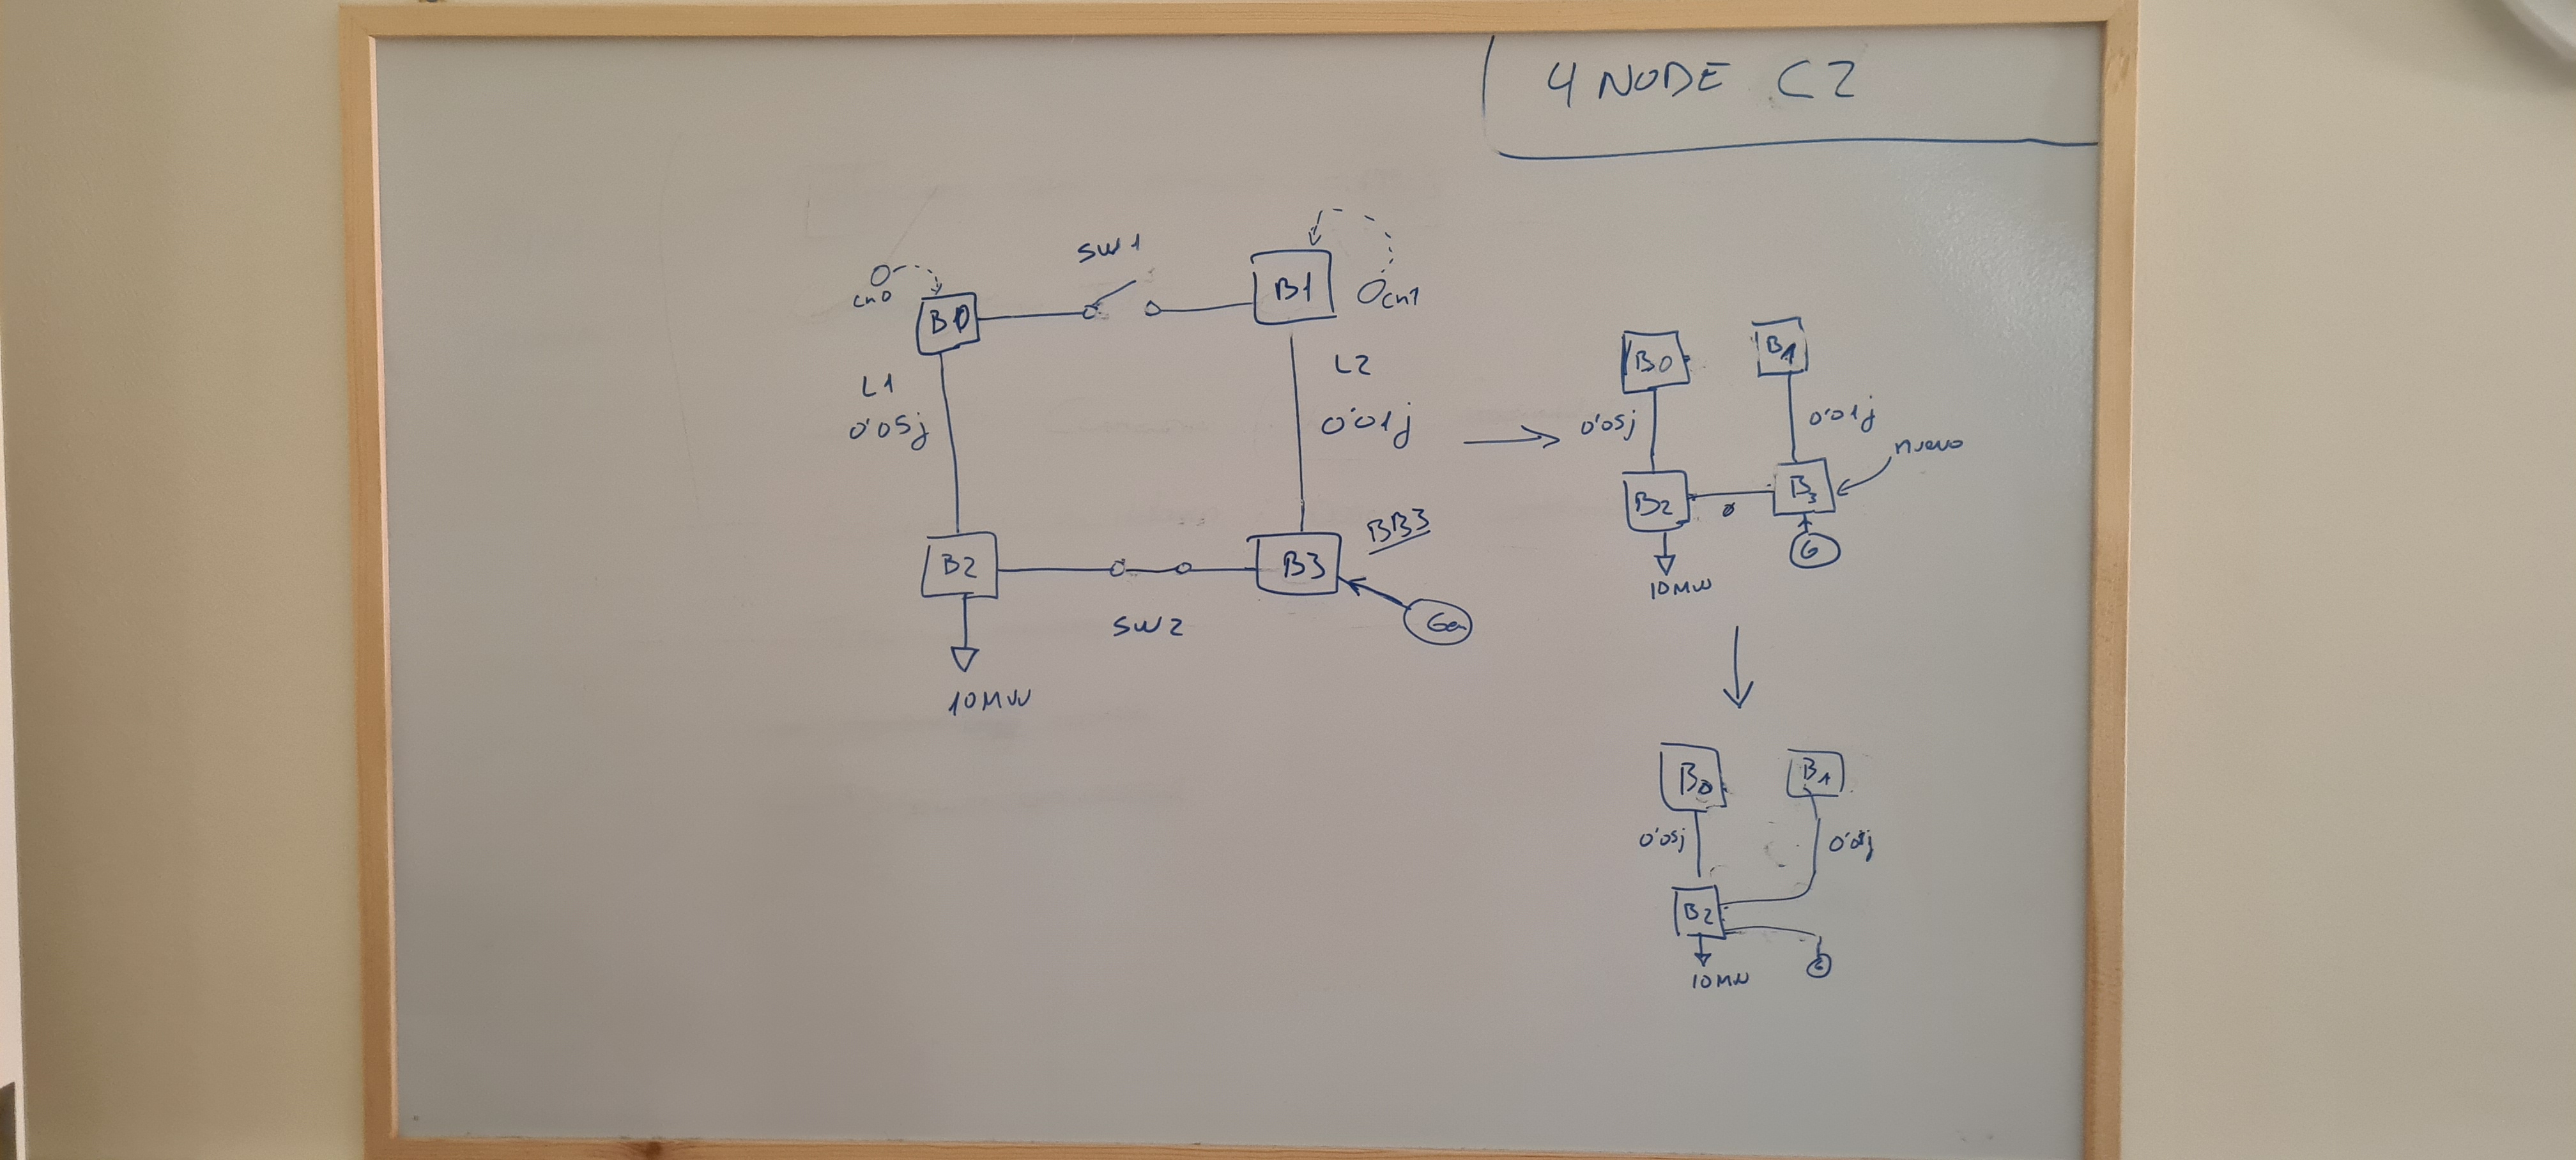 4 NODE C2
SW1
cn0
B0
B1
cn1
L1
0'05j
L2
0'01j
BB3
B2
B3
SW2
Gen
10MW
B0
B1
0'05j
0'01j
nuevo
B2
0
B3
G
10MW
B0
B1
0'05j
B2
G
10MW